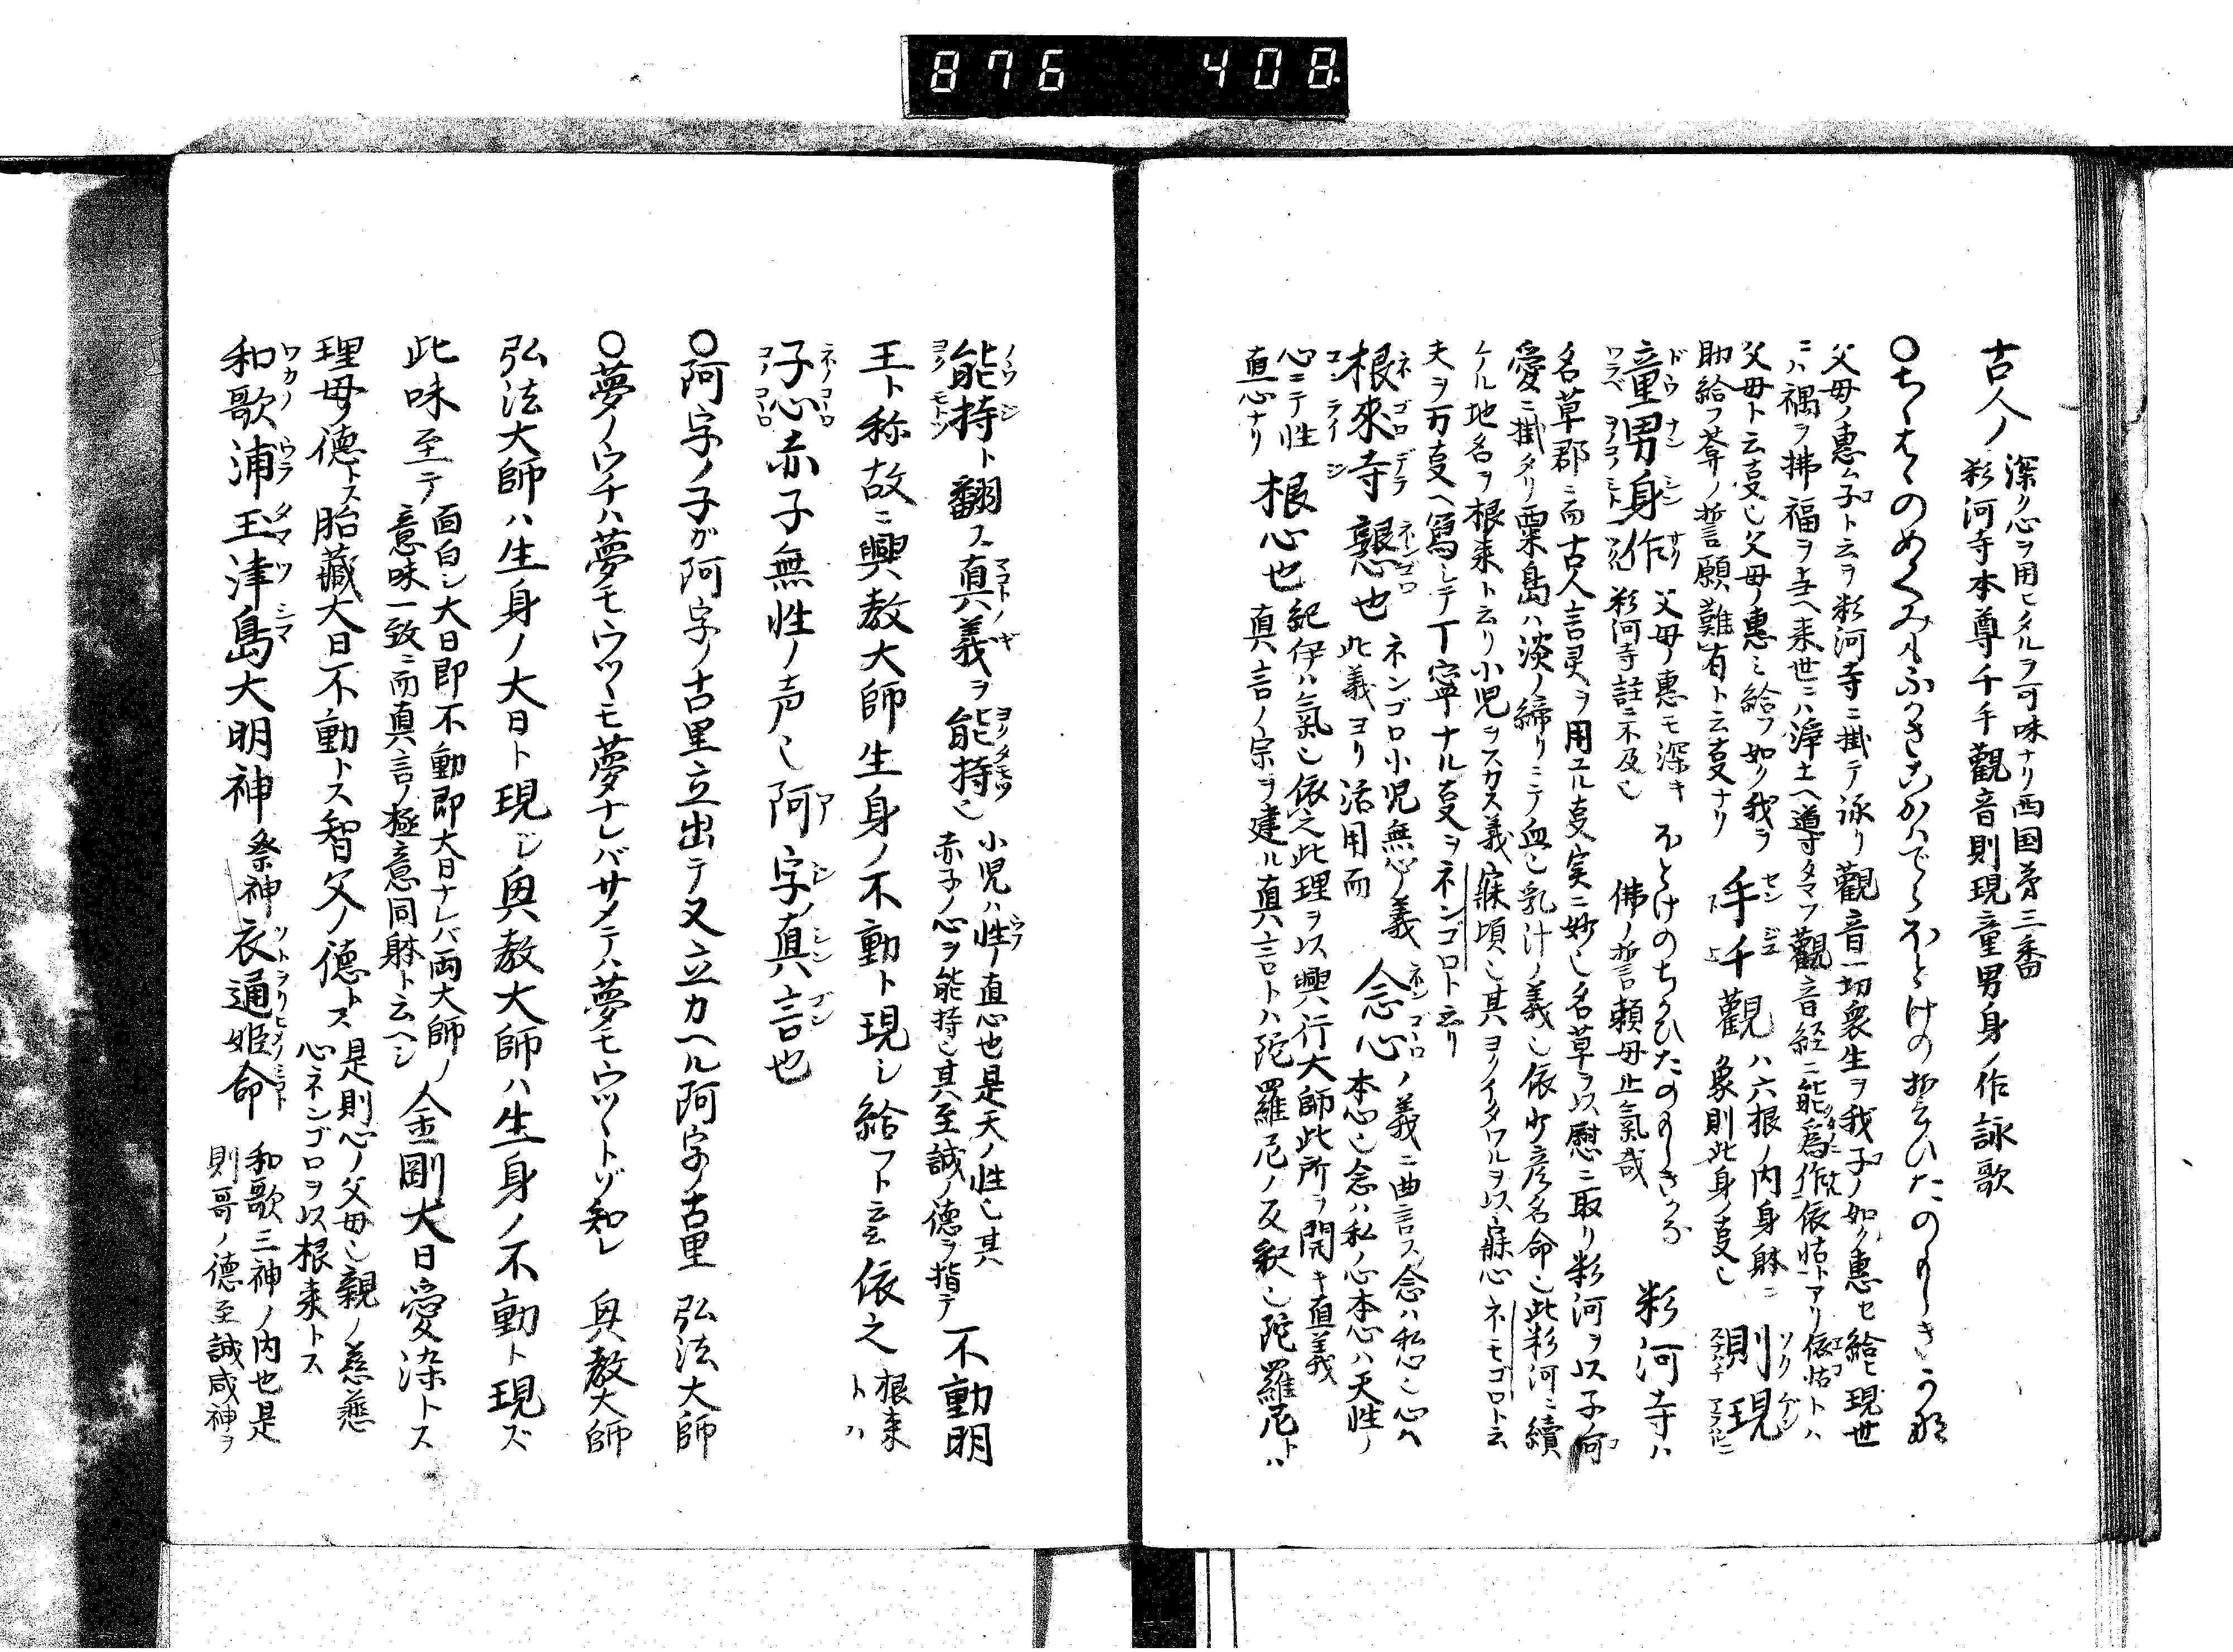 876 408
古人ノ 深ク心ヲ用ヒタルヲ可味ナリ西国第三番
粉河寺本尊千手觀音則現童男身ノ作詠歌
○ちゝはゝのめくみもふかきこかハでらほとけのちかひたのもしきかな
父母ノ惠ム子ト云ヲ粉河寺ニ掛テ詠リ觀音一切衆生ヲ我子ノ如ク惠セ給ヒ現世
ニハ禍ヲ拂福ヲ与ヘ来世ニハ淨土ヘ導タマフ觀音経ニ能爲作依怙トアリ依怙トハ
父母ト云亊也父母ノ惠ミ給フ如ク我ヲ
助給フ等ノ誓願難有ト云亊ナリ
千手觀 ハ六根ノ内身躰ニ
象則此身ノ亊也
則現
童男身作 父母ノ惠モ深キ
粉河寺註ニ不及也
ほとけのちかひたのもしきかな
佛ノ誓言頼母止氣哉
粉河寺ハ
名草郡ニ而古人言灵ヲ用ユル亊実ニ妙也名草ヲ以慰ニ取リ粉河ヲ以子何
愛ニ掛タリ粟島ハ淡ノ締リニテ血也乳汁ノ義也依少彦名命也此粉河ニ續
ケル地名ヲ根来ト云リ小児ヲスカス義寐頃也其ヨクイタワルヲ以寐心ネモゴロト云
夫ヲ万亊ヘ写シテ丁寧ナル亊ヲネンゴロト云リ
根來寺 懇也 ネンゴロ小児無心ノ義
此義ヨリ活用而
念心ノ義ニ曲言ス念ハ私心也心ヘ
本心也念ハ私ノ心本心ハ天性ノ
心ニテ性
直心ナリ
根心也 紀伊ハ氣也依之此理ヲ以興行大師此所ヲ開キ直義
真言ノ宗ヲ建ル真言トハ陀羅尼ノ反釈也陀羅尼トハ
能持ト翻ス真義ヲ能持也 小児ハ性ノ直心也是天ノ性也其
赤子ノ心ヲ能持也其至誠ノ德ヲ指テ
不動明
王ト称故ニ興教大師生身ノ不動ト現シ給フト云云依之 根来
トハ
子心赤子無性ノ声也阿字ノ真言也
○阿字ノ子ガ阿字ノ古里立出テ又立カヘル阿字ノ古里 弘法大師
○夢ノウチハ夢モウツヽモ夢ナレバサメテハ夢モウツヽトゾ知レ 興教大師
弘法大師ハ生身ノ大日ト現ジ興教大師ハ生身ノ不動ト現ズ
此味至テ 面白シ大日即不動即大日ナレバ両大師ノ
意味一致ニ而真言ノ極意同躰ト云ヘシ
金剛大日愛染トス
理母ノ德トス胎藏大日不動トス智父ノ德トス 是則心ノ父母也親ノ慈悲
心ネンゴロヲ以根来トス
和歌浦玉津島大明神 祭神衣通姫命 和歌三神ノ内也是
則哥ノ德至誠感神ヲ